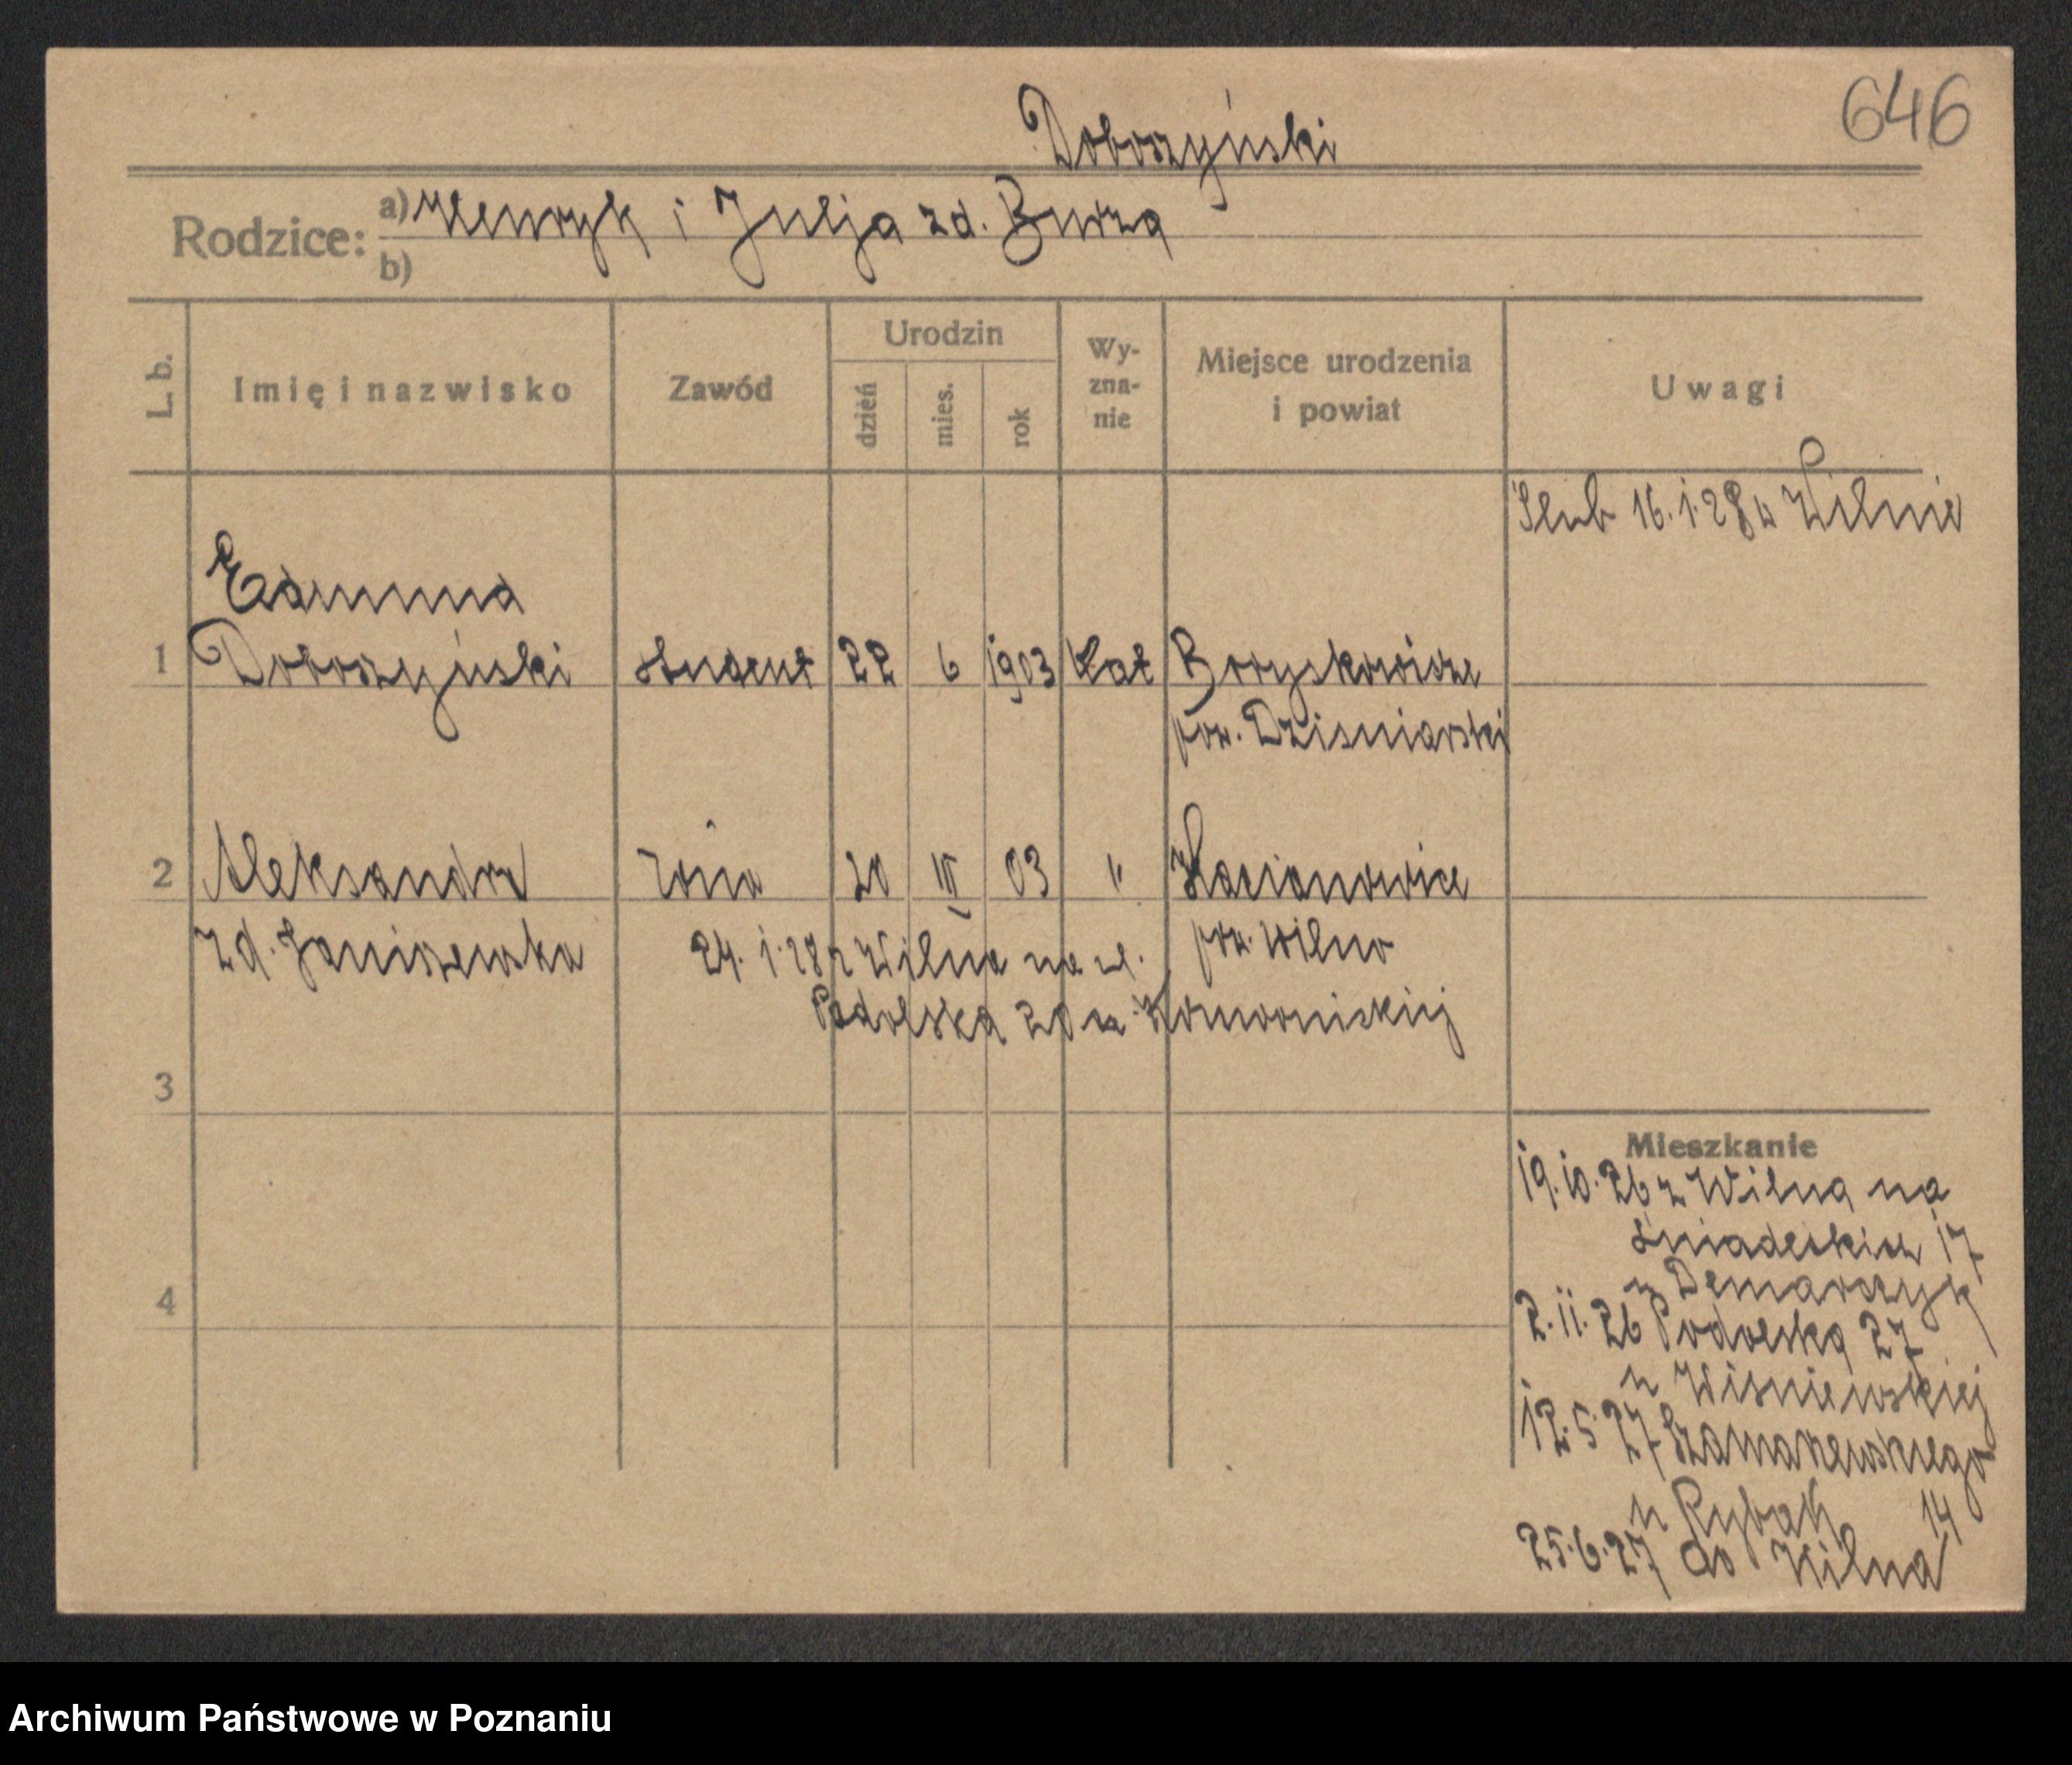 646
Doboszyński
Rodzice: a) Henryk i Julja zd. Burza
b)
L. b.
Imię i nazwisko
Zawód
Urodzin
dzień
mies.
rok
Wy-
zna-
nie
Miejsce urodzenia
i powiat
Uwagi
Ślub 16.1.28 w Wilnie
Edmund
1 Doboszyński student 22 6 1903 kat Boryskowicze
pow. Dziśniarski
2 Aleksandra żona 20 III 03 " 
zd. Janiszewska pow. Wilno
24.1.28 z Wilna na ul.
Podolska 20 u
3
4
Mieszkanie
19.10.26 z Wilna na
Śniadeckich 17
u Demarczyk
2.11.26 Podolska 27
u Wiśniewskiej
12.5.27 Szamarzewskiego
u Rybak 14
25.6.27 do Wilna
Archiwum Państwowe w Poznaniu